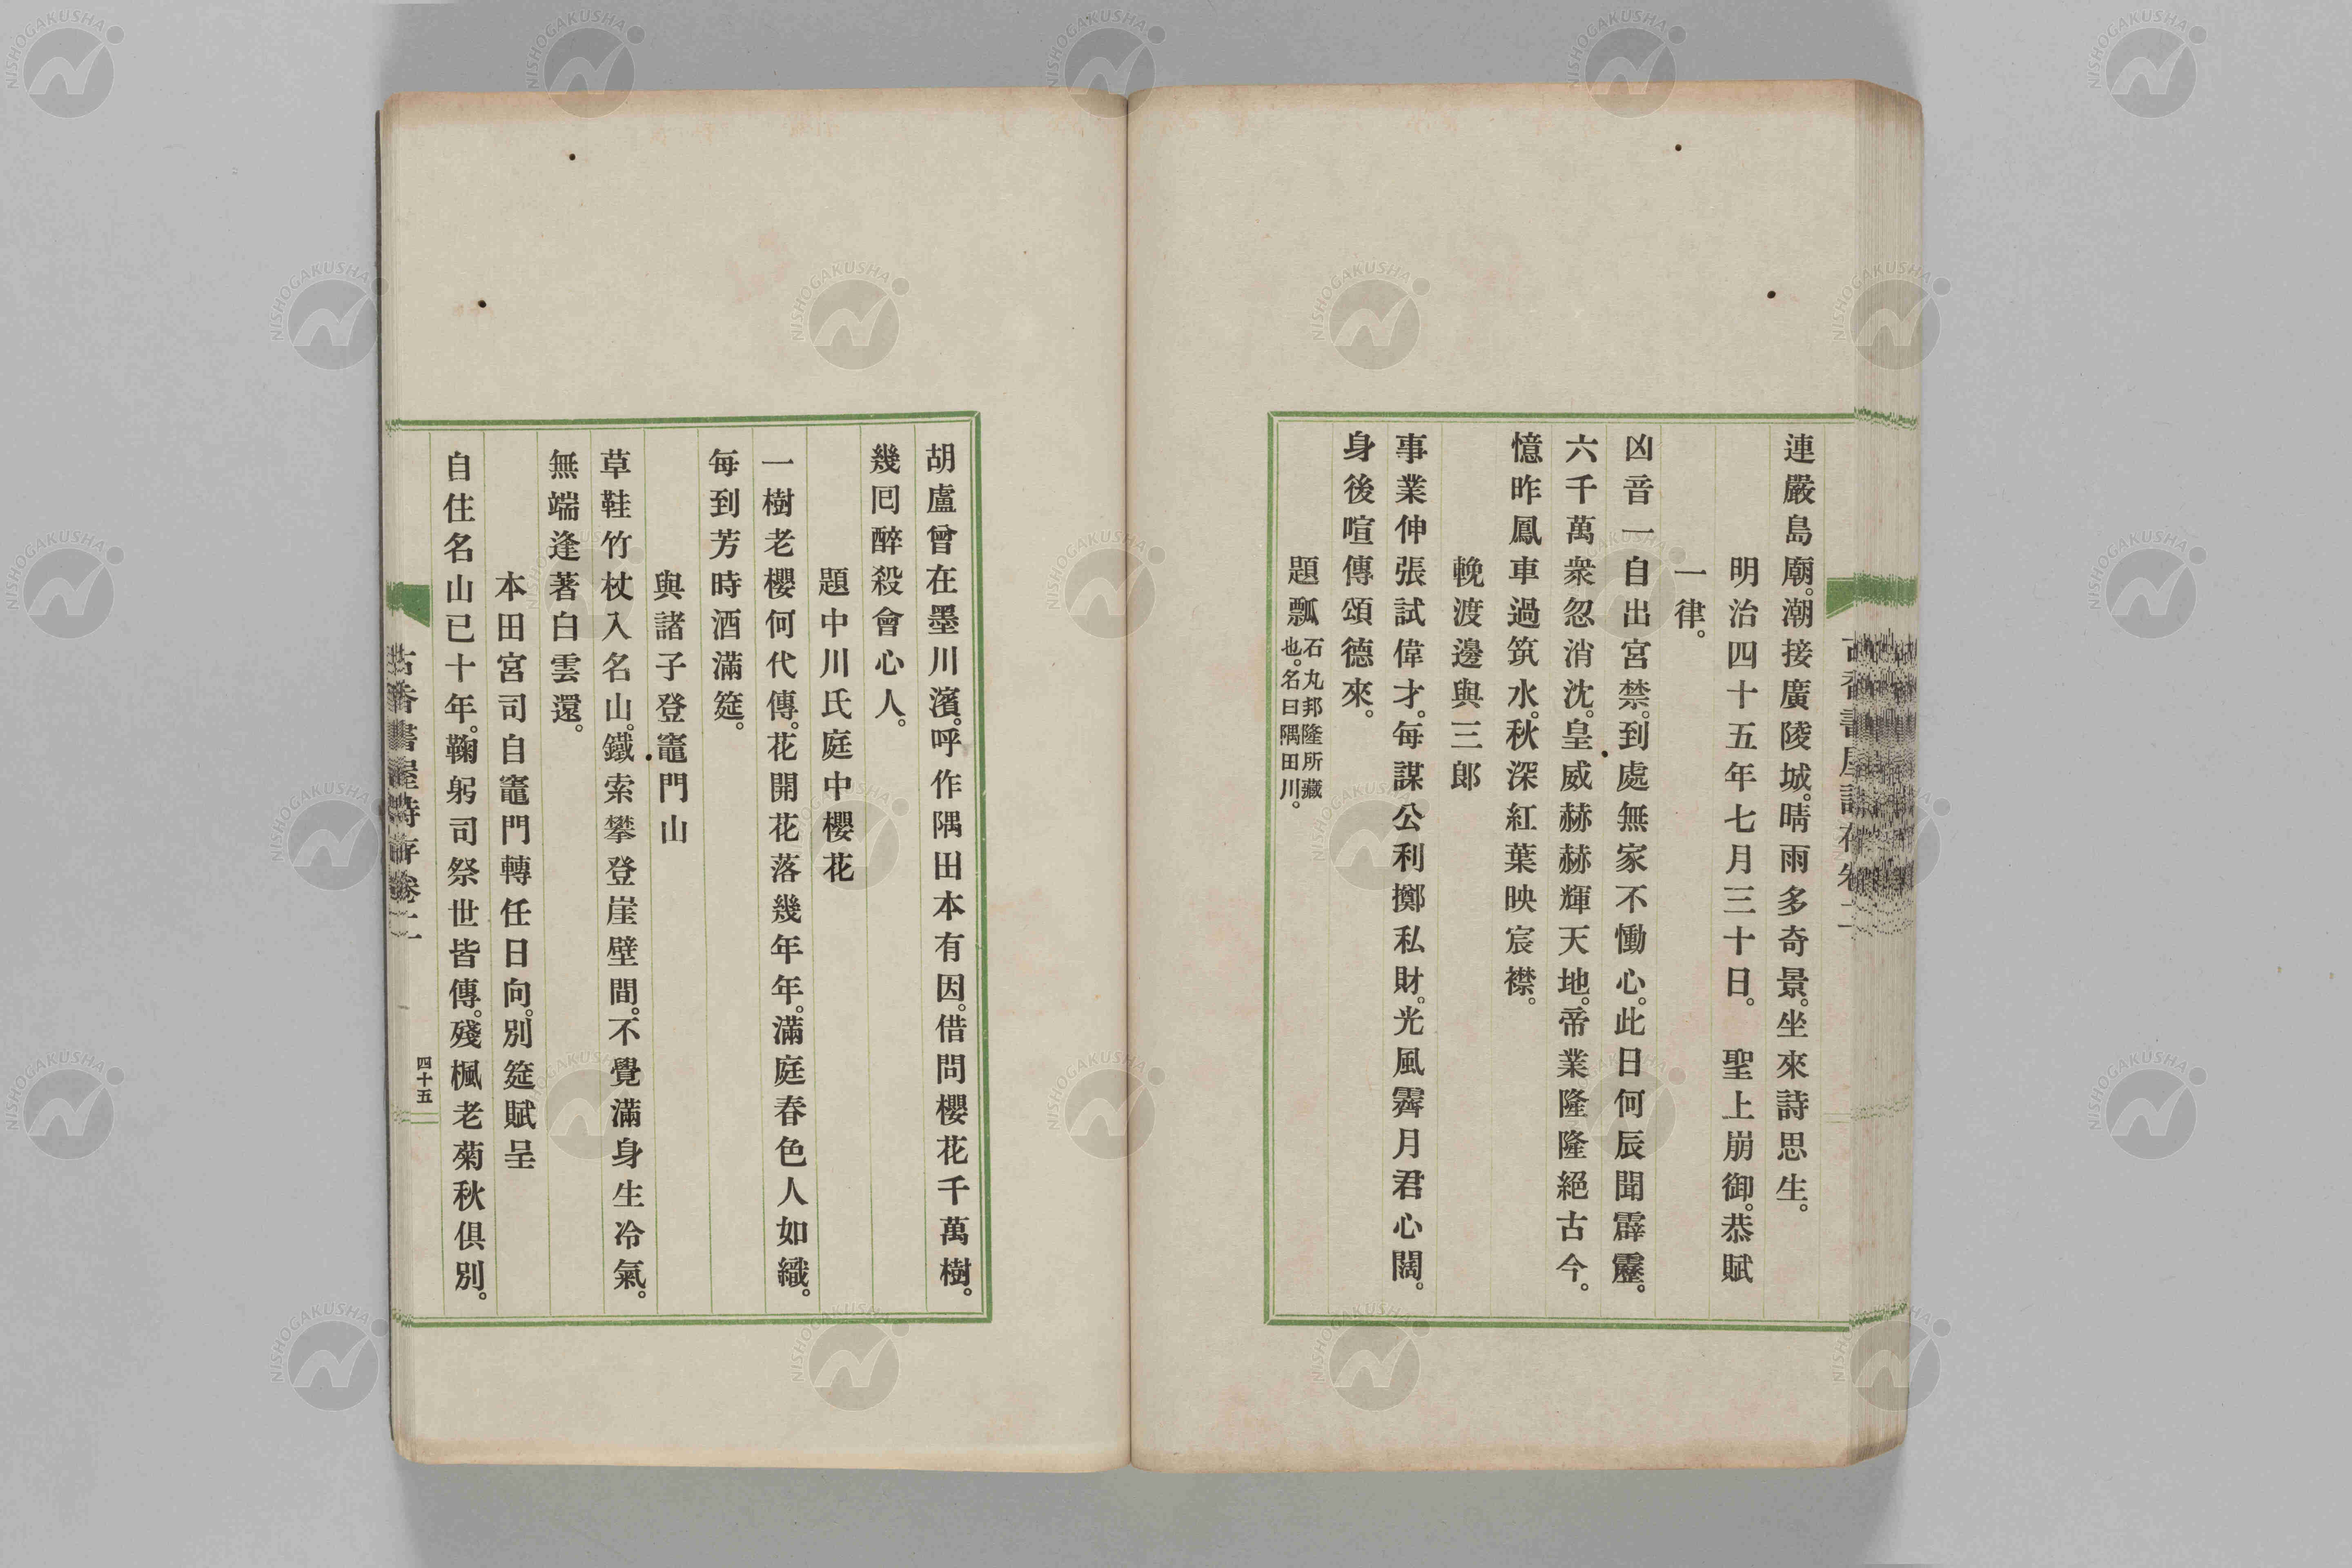 連嚴島廟。潮接廣陵城。晴雨多奇景。坐來詩思生。
明治四十五年七月三十日。　聖上崩御。恭賦
一律。
凶音一自出宮禁。到處無家不慟心。此日何辰聞霹靂。
六千萬衆忽消沈。皇威赫赫輝天地。帝業隆隆絕古今。
憶昨鳳車過筑水。秋深紅葉映宸襟。
輓渡邊與三郎
事業伸張試偉才。每謀公利擲私財。光風霽月君心闊。
身後喧傳頌德來。
題瓢石丸邦隆所藏也。名曰隅田川。
胡盧曾在墨川濱。呼作隅田本有因。借問櫻花千萬樹。
幾囘醉殺會心人。
題中川氏庭中櫻花
一樹老櫻何代傳。花開花落幾年年。滿庭春色人如織。
每到芳時酒滿筵。
與諸子登竈門山
草鞋竹杖入名山。鐵索攀登崖壁間。不覺滿身生冷氣。
無端逢著白雲還。
本田宮司自竈門轉任日向。別筵賦呈
自住名山已十年。鞠躬司祭世皆傳。殘楓老菊秋俱別。
古香書屋詩存卷二
四十五
NISHOGAKUSHA